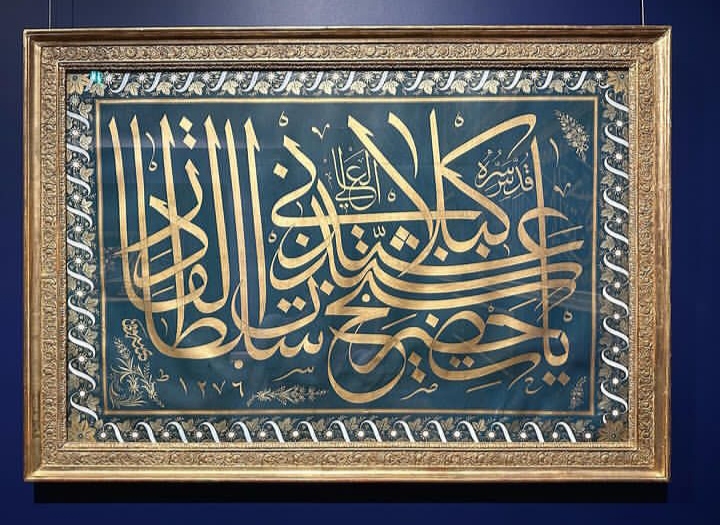 يا حضرت شيخ سلطان
عبد القادر كيلاني
قدس سره العالي
١٢٧٦